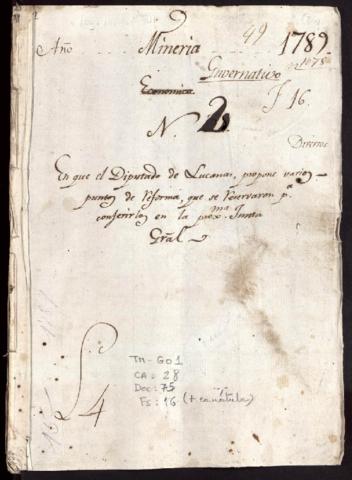 2
Año Mineria 49 1789
Guvernativo
Economica
f 16.
N. 2
Diverso
En que el Diputado de Lucanas, propone varios
puntos de Reforma, que se reservaron pa
conferirlos en la proxma Junta
Gral
L. c
4
TM-GO1
CA: 28
Doc: 75
Fs: 16 (+ carátula)